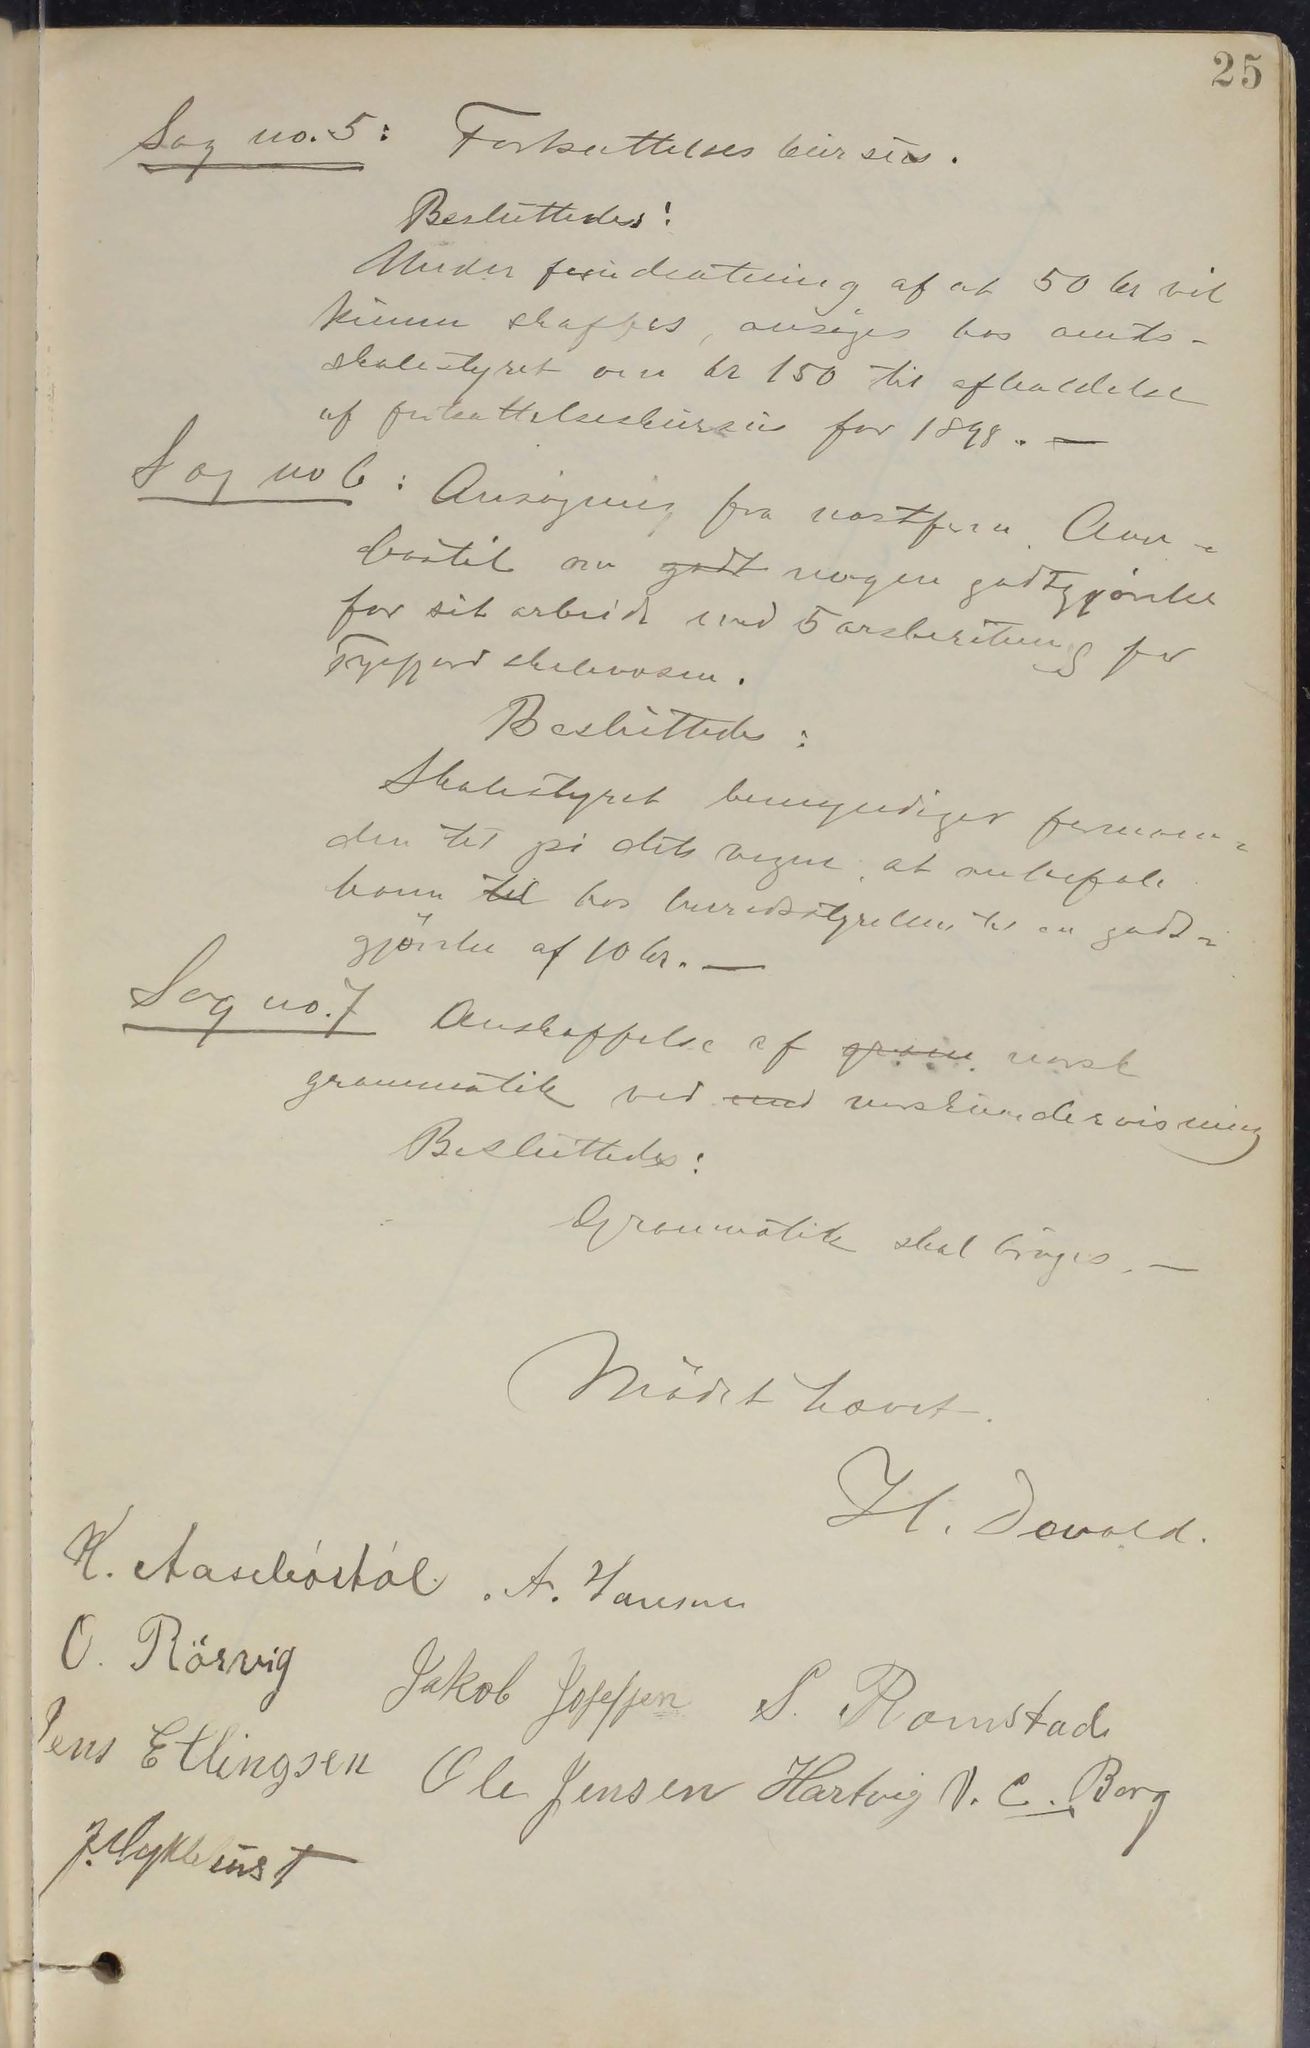 25
Sag no. 5: Fortsættelseskursus.
Besluttedes:
Under forudsætning af at 50 kr vil
kunne skaffes, ansøges hos amts-
skolestyret om kr 150 til afholdelse
af fortsættelseskursus for 1898. —
Sag no 6: Ansøgning fra
om godt nogen godtgjørelse
for sit arbeide med 5 årsberetning for
skolevæsen.
Besluttedes:
Skolestyret bemyndiger forman-
den til på dets vegne at anbefale
ham til hos herredsstyrelsen til en godt-
gjørelse af 10 kr. —
Sag no. 7 Anskaffelse af gram norsk
grammatik ved und norskundervisning
Besluttedes:
Grammatik skal bruges. —
Mödet hævet.
H. Devold.
K. A. Hansen
O. Rörvig Jakob Josefsen S. Romstad
Jens Etlingsen Ole Jensen Hartvig V. C. Borg
J. Myklebust